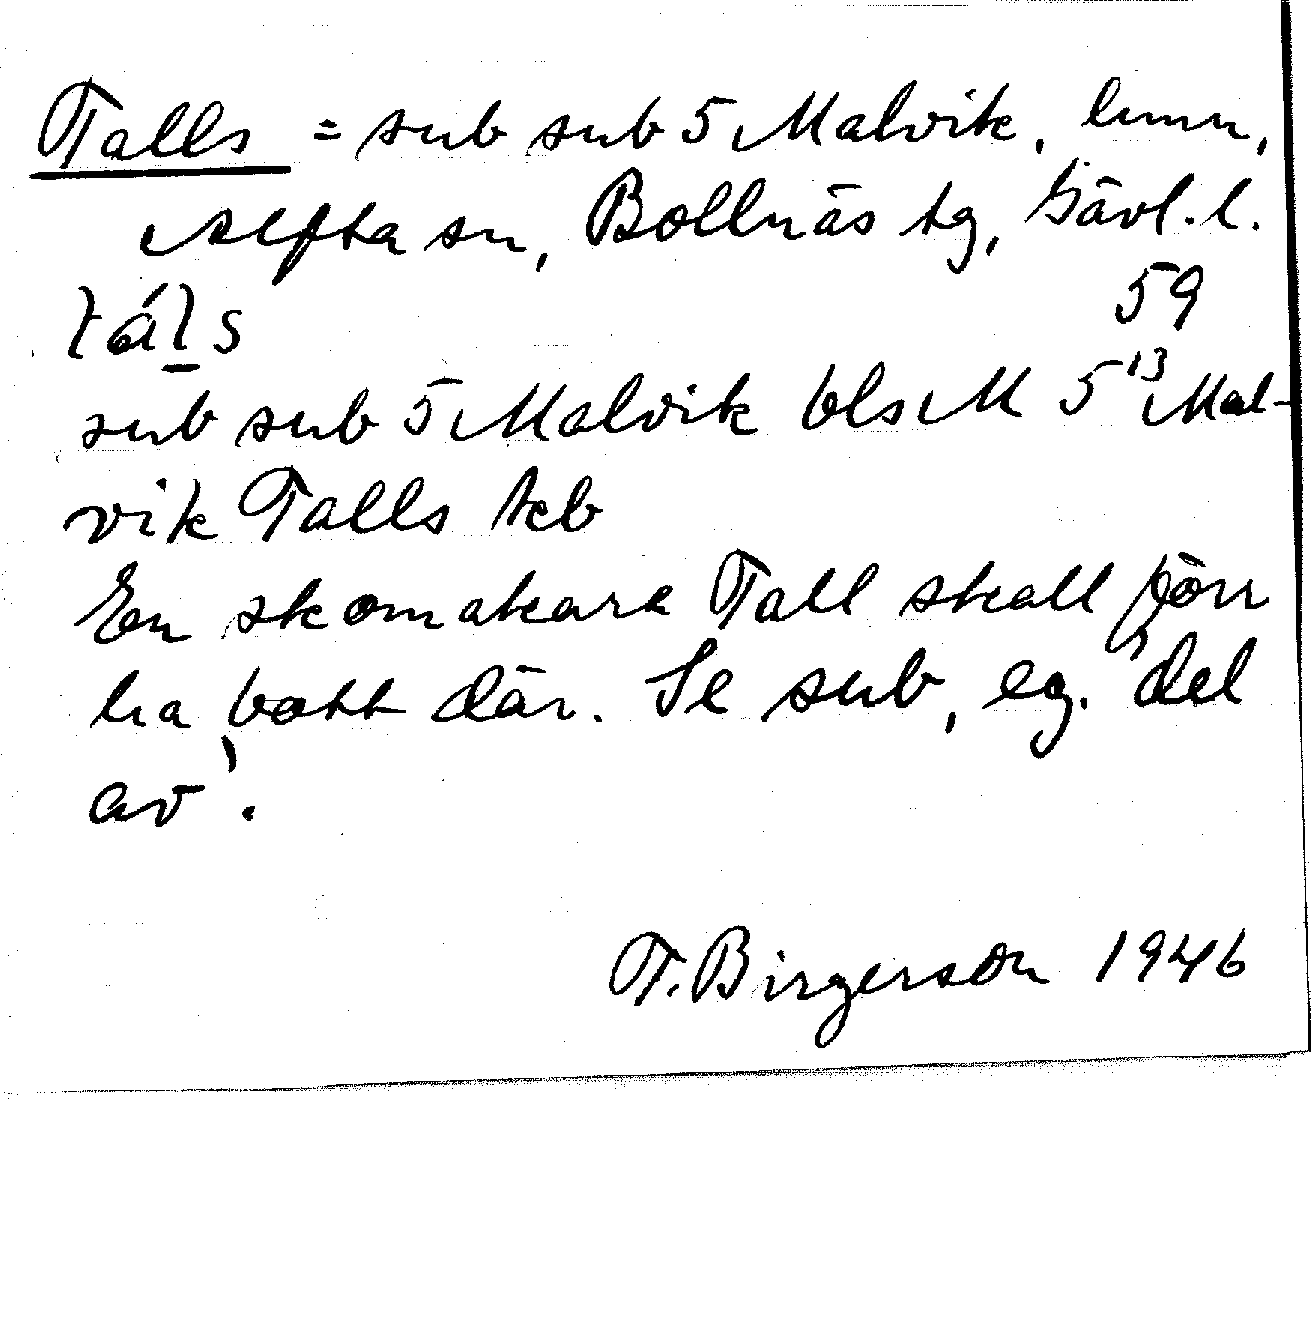 Talls = sub sub 5 Malvik, hmn,
Alfta sn, Bollnäs tg, Gävl. l.
táls 59
sub sub 5 Malvik bls M 5¹³ Mal-
vik Talls tkb
En skomakare Tall skall förr
ha bott där. Se sub, eg. 'del
av'.
T. Birgerson 1946